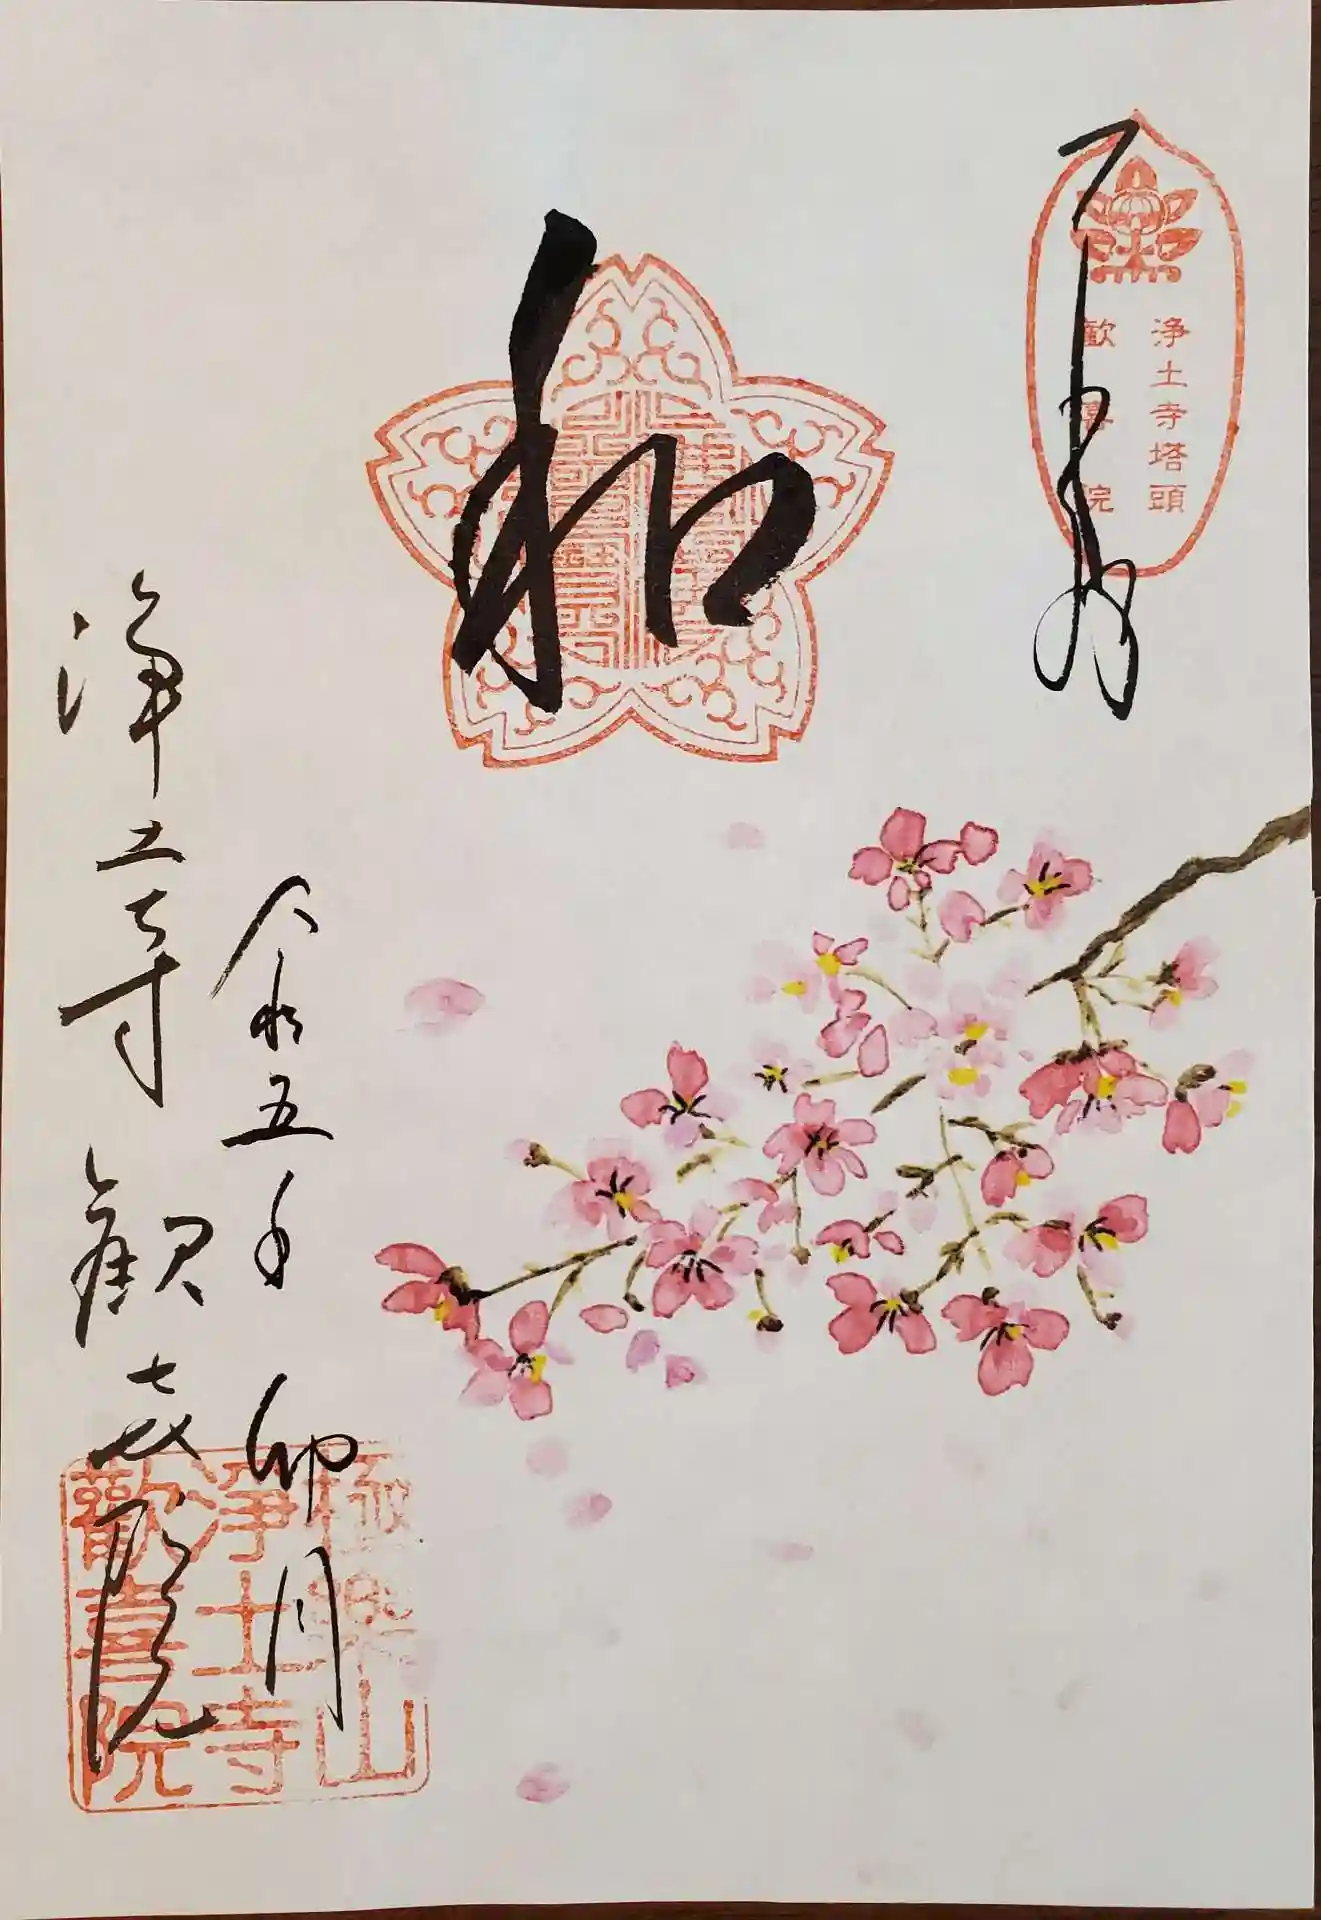 奉拝
浄土寺塔頭
歓喜院
和
令和五年 卯月
極楽山
浄土寺
歡喜院
浄土寺 歓喜院